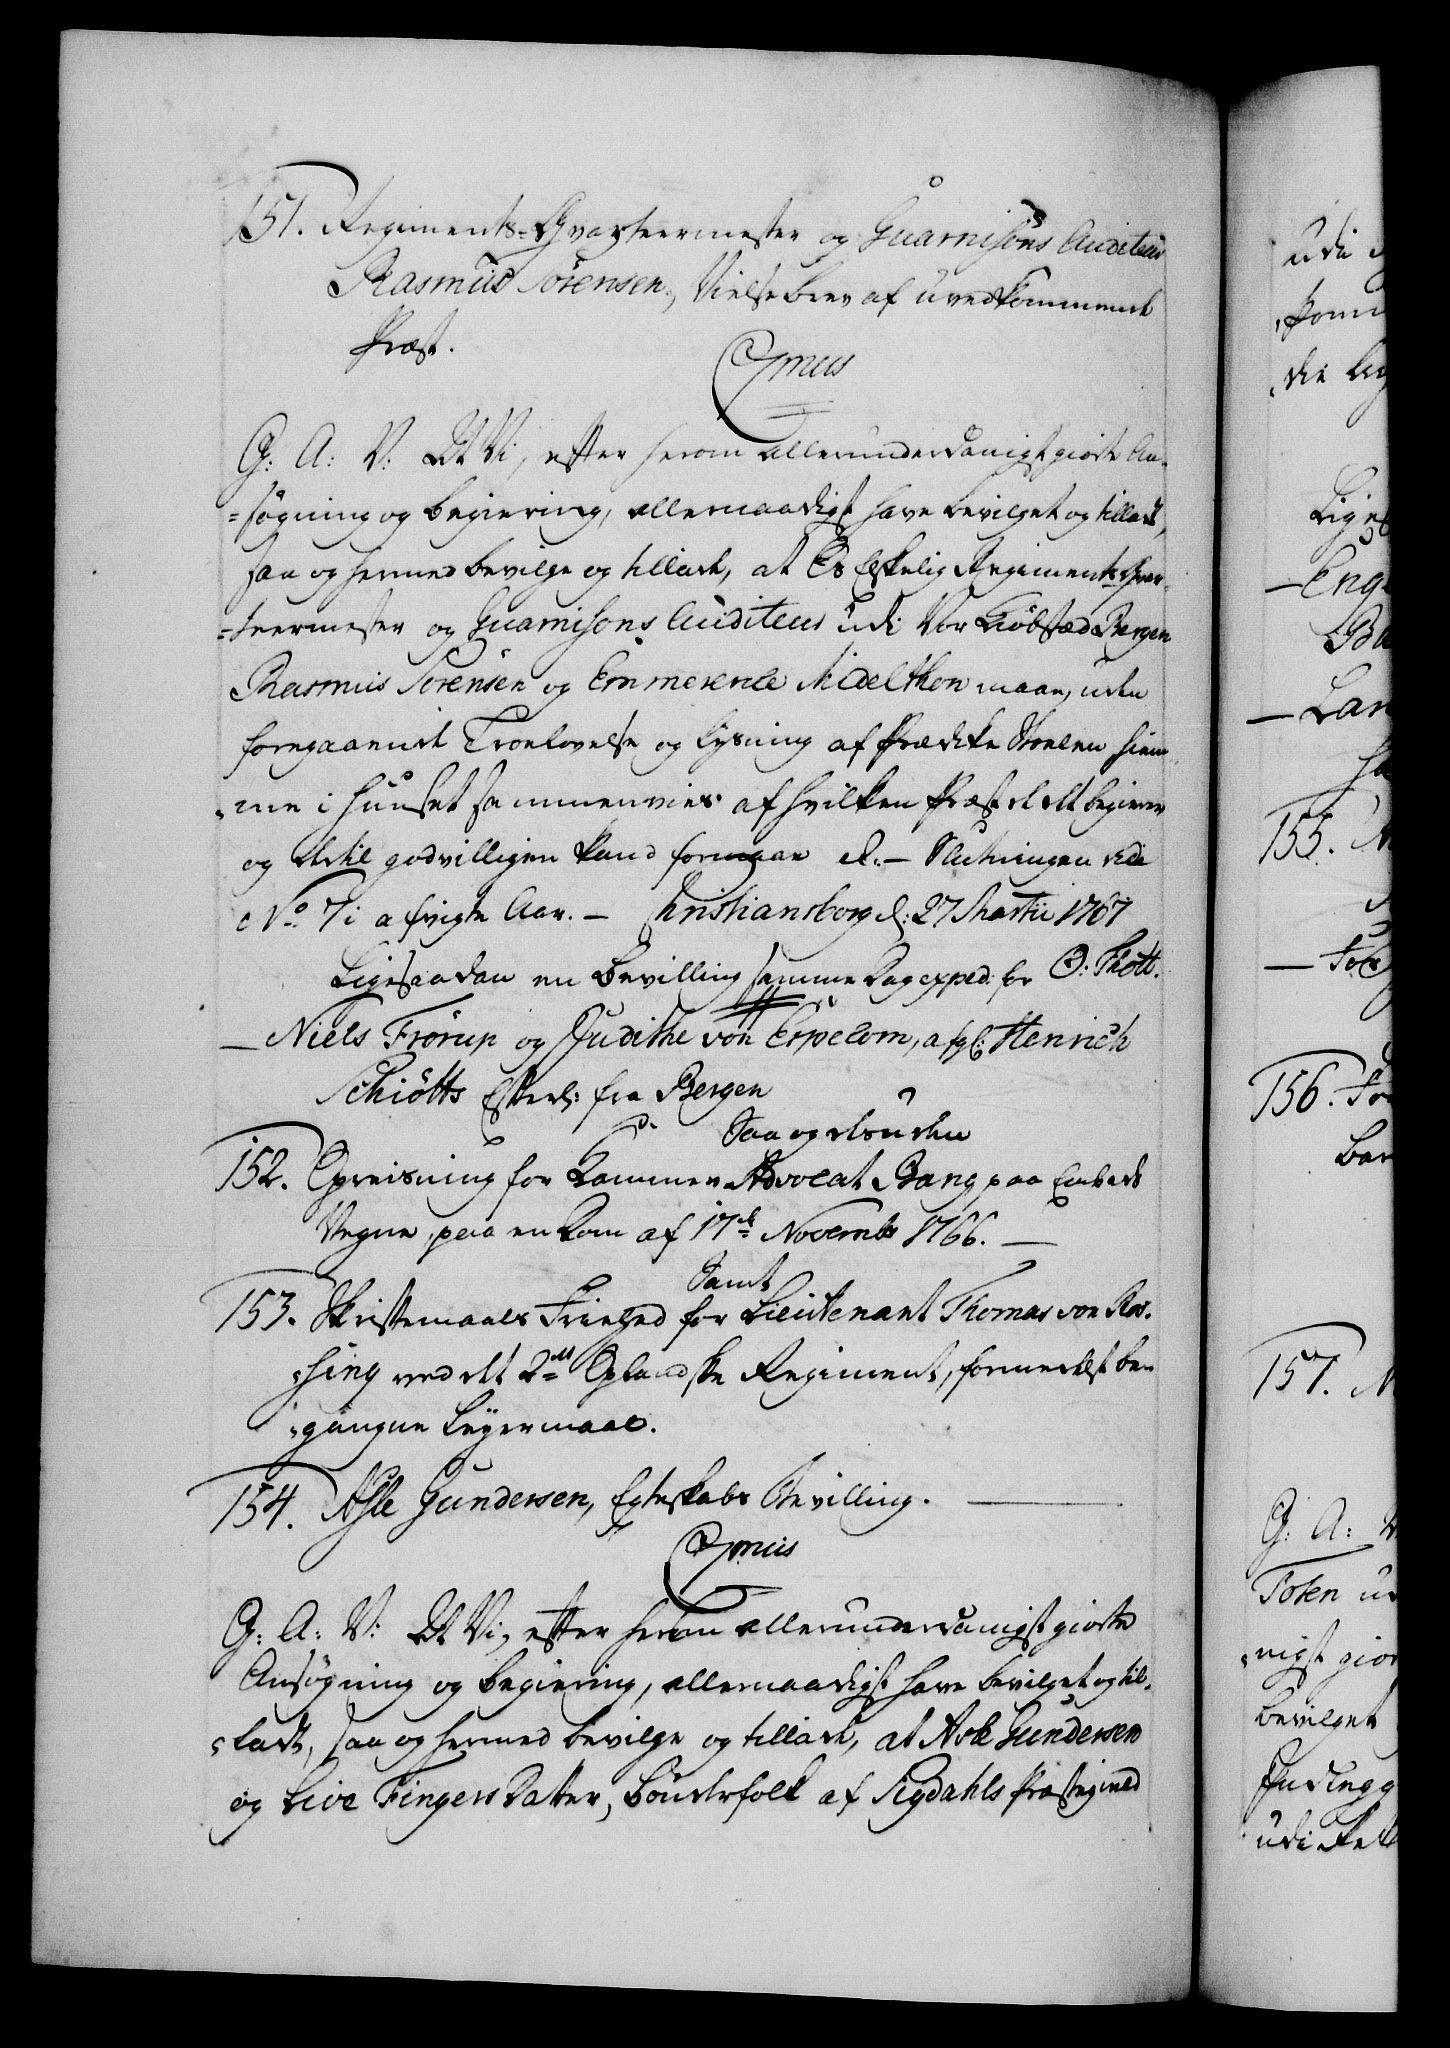 151. Regiments-Qvarteermester og Guarnisons Auditeur
Rasmus Sörensen, Vielsebrev af uvedkommende
Præst.
C7mus
G: A: V: At Vi, efter herom allerunderdanigst giorte An-
=søgning og begiering, allernaadigst have bevilget og tilladt,
saa og hermed bevilge og tillade, at Os Elskelig Regiments Qvar-
=teermester og Guarnisons Auditeur udi Vor Kiöbstæd Bergen
Rasmus Sörensen og Emmerence Midelthon maae, uden
foregaaende Troelovelse og Lysning af Prædike Stoelen hiem-
me i Huuset sammenvies af hvilken Præst de det begierer
og dertil godvilligen kand formaae etc. — Slutningen vide
No 7 i afvigte Aar. — Christiansborg d: 27 Martii 1767
Ligesaadan en Bevilling samme Dag exped: for O: Thott.
— Niels Frörup og Judithe von Erpecom, afg: Henrich
Schiötts Efterl: fra Bergen
Saa og desuden
152. Opreisning for Kammer Advocat Bang paa Embeds
Vegne, paa en Dom af 17de Novembr 1766. —
Samt
153. Skriftemaals Friehed for Lieutenant Thomas von Ros-
sing ved det 2det Oplandske Regiment, formedelst be-
gangne Leyermaal.
154. Asle Gundersen, Egteskabs Bevilling. —
C7mus
G: A: V: At Vi, efter herom allerunderdanigst giorte
Ansøgning og begiering, allernaadigst have bevilget og til-
ladt, saa og hermed bevilge og tillade, at Asle Gundersen
og Live Fingers Datter, Bönderfolk af Sigdahls Præstegield
udi
kom
Liges
— Eng
— Lan
155.
156.
157.
G: A:
Toten ud
nigst gior
bevilget
udi